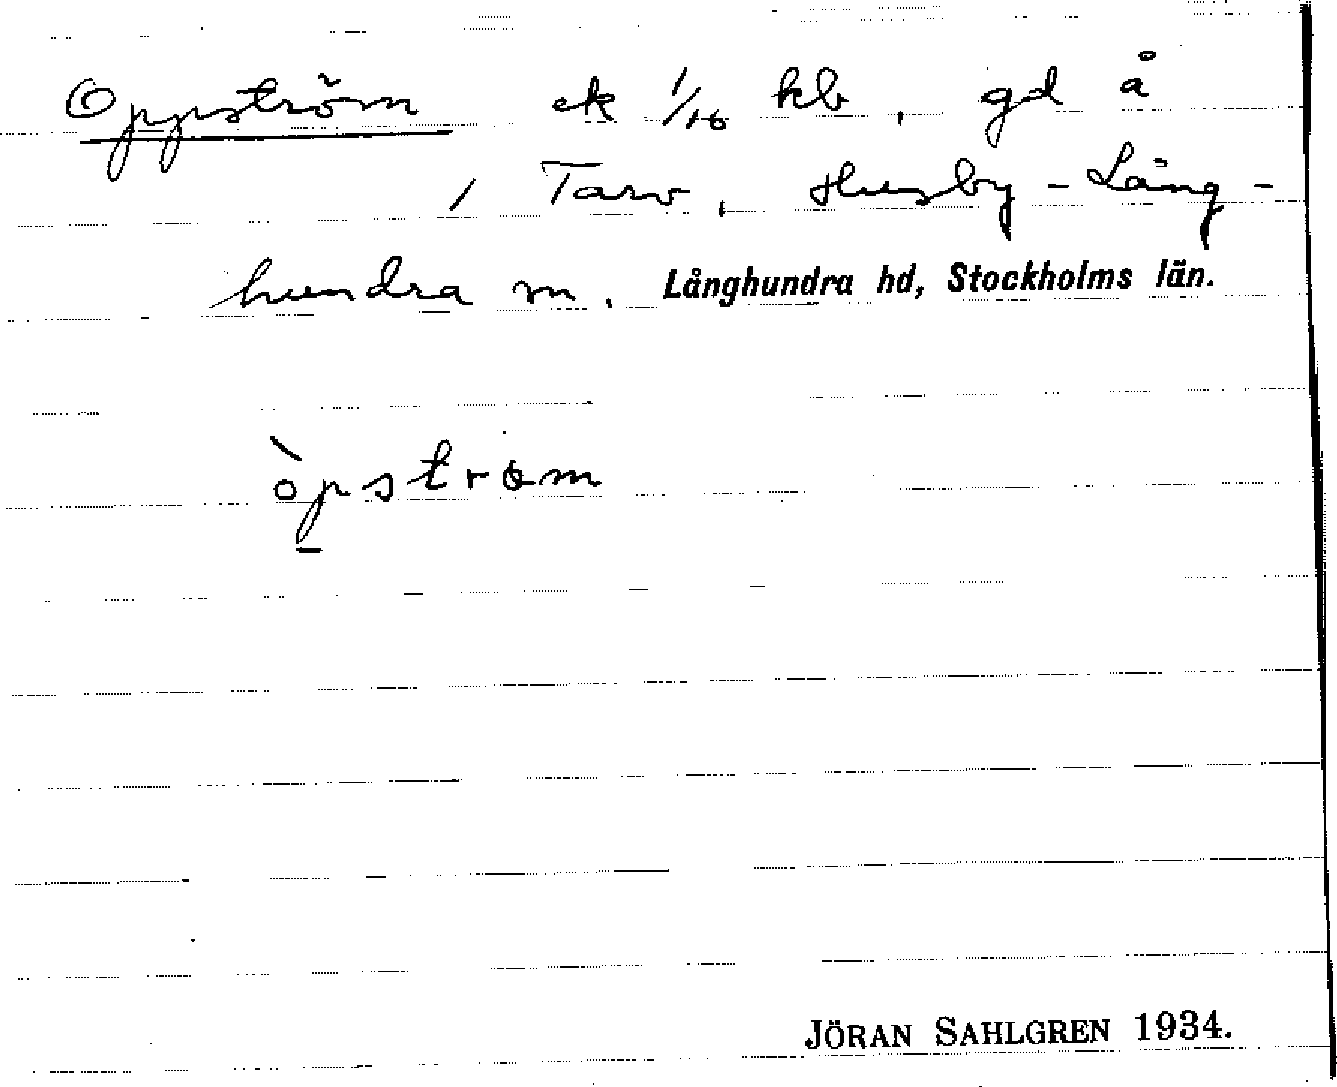 Oppström ek 1/16 kb, gd å
1 Tarv, Husby-Lång-
hundra m. Långhundra hd, Stockholms län.
òpstrɵm
JÖRAN SAHLGREN 1934.